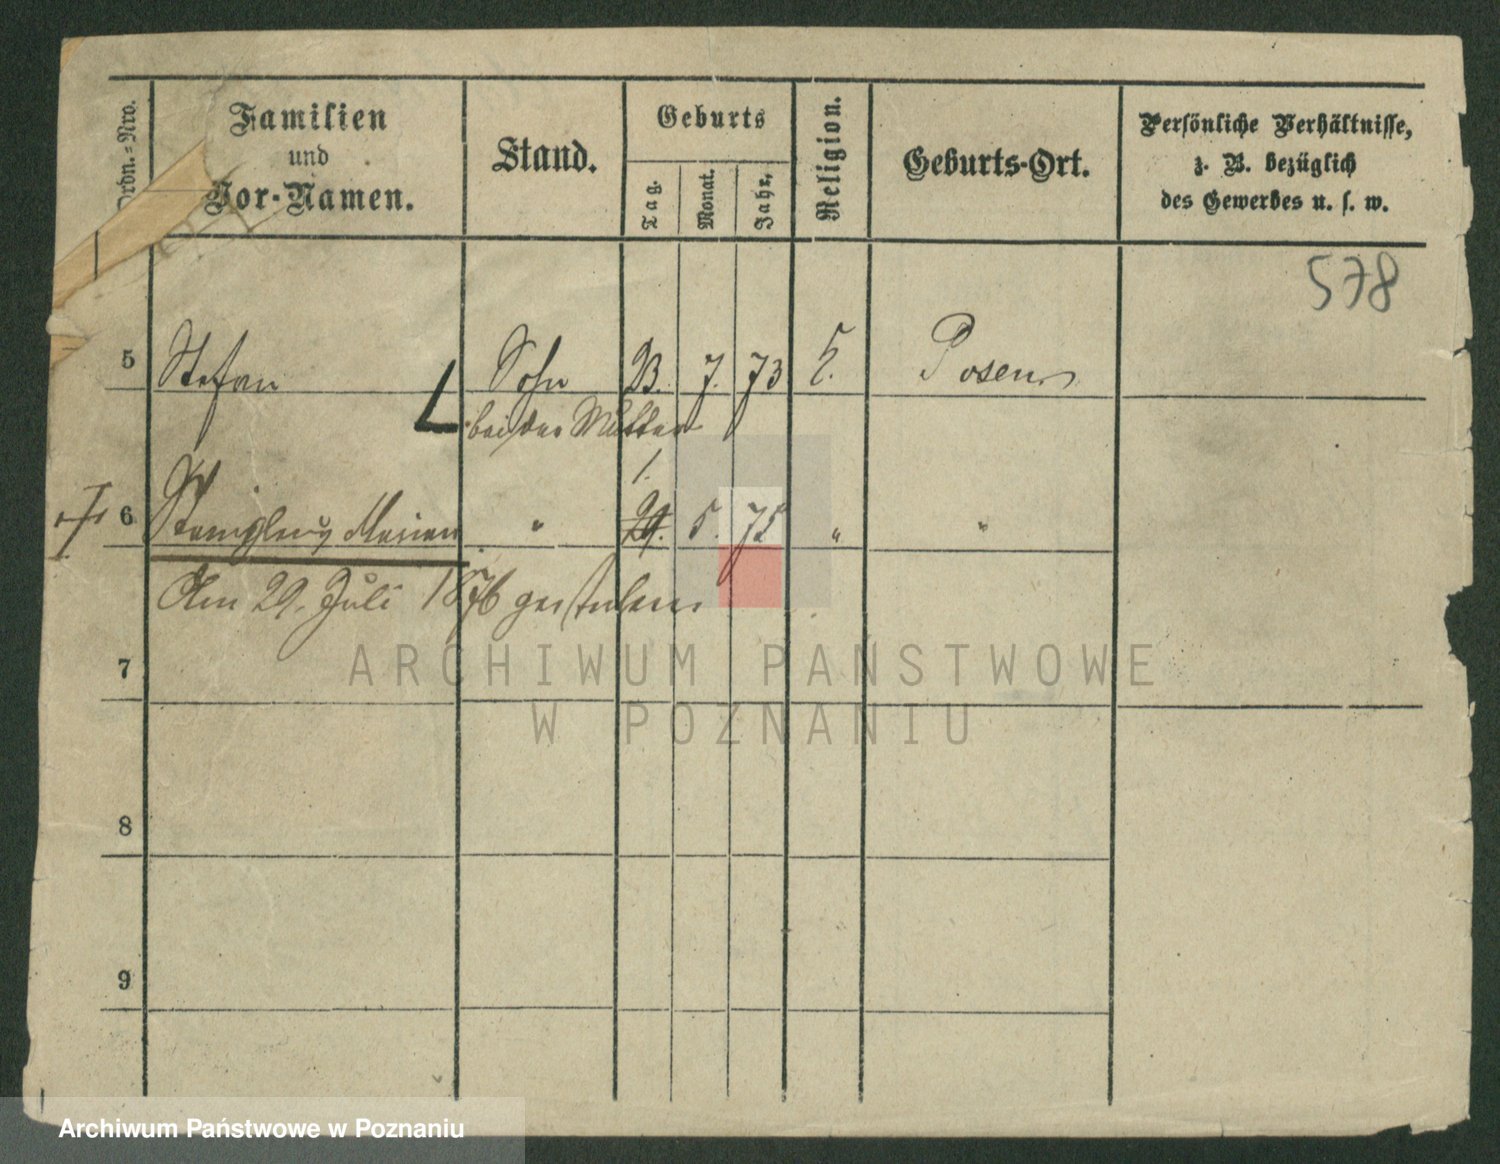 Ordn.-Nro.
Familien
und
Vor-Namen.
Stand.
Geburts
Tag.
Monat.
Jahr.
Religion.
Geburts-Ort.
Persönliche Verhältnisse,
z. B. bezüglich
des Gewerbes u. s. w.
578
5 Stefan Sohn 23. 7. 73 Posen
bei der Mutter
1.
6 Marian " 29. 5. 75 " "
Am 29. Juli 1876 gestorben
7
8
9
ARCHIWUM PAŃSTWOWE
W POZNANIU
Archiwum Państwowe w Poznaniu